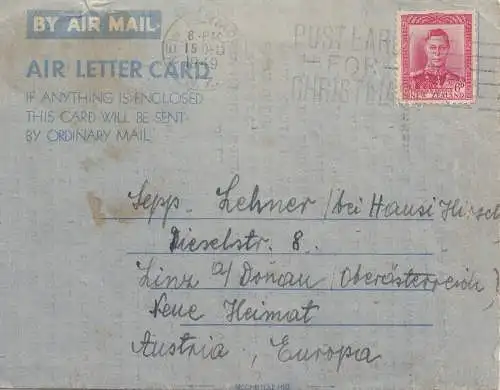 BY AIR MAIL
AIR LETTER CARD
IF ANYTHING IS ENCLOSED
THIS CARD WILL BE SENT
BY ORDINARY MAIL
8 - PM
15 DE
1949
POST EARLY
FOR
CHRISTMAS
6D
NEW ZEALAND
Sepp. Lehner /bei Hansi Hirsch
Dieselstr. 8.
Linz a/ Donau /Oberösterreich)
Neue Heimat
Austria, Europa